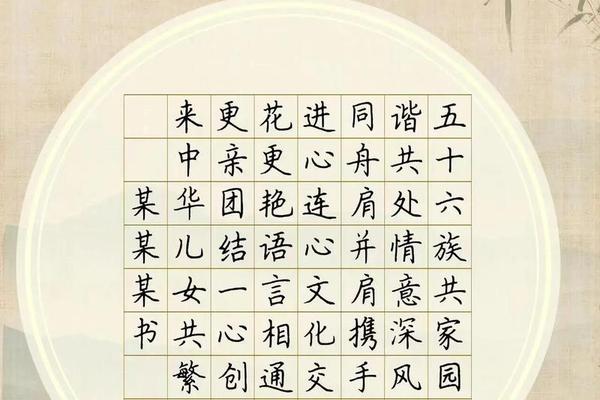 五十六族共家园
谐共处情意深风
同舟肩并肩携手
进心连心文化交
花更艳语言相通
更亲团结一心创
来中华儿女共繁
某某某书